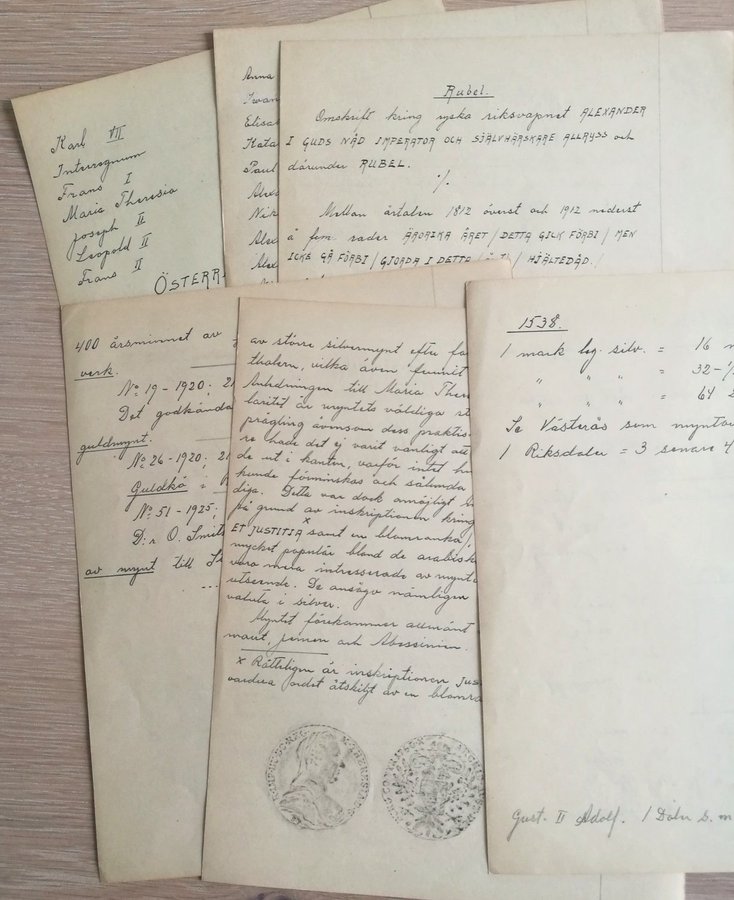 Karl VII
Interregnum
Frans I
Maria Theresia
Joseph II
Leopold II
Frans II
ÖSTERR
Anna
Iwan
Elisa
Kata
Paul
Alex
Nik
Alex
Alex
Rubel.
Omskrift kring ryska riksvapnet ALEXANDER
I GUDS NÅD IMPERATOR OCH SJÄLVHÄRSKARE ALLRYSS och
därunder RUBEL.
·/.
Mellan årtalen 1812 överst och 1912 nederst
å fem rader ÄRORIKA ÅRET / DETTA GICK FÖRBI / MEN
ICKE GÅ FÖRBI / GJORDA I DETTA / HJÄLTEDÅD. /
400 årsminnet av
verk.
No 19 - 1920: 2
Det godkända
guldmynt:
No 26 - 1920: 2
Guldkö i
No 51 - 1925:
D:r O. Smit
av mynt till S
av större silvermynt efter
thalern, vilka även funnit
Anledningen till Maria There
laritet är myntets väldiga st
prägling ävensom dess praktis
re hade det ej varit vanligt att
de ut i kanten, varför intet hi
kunde förminskas och sålunda
diga. Detta var dock omöjligt
på grund av inskriptionen kring
ET JUSTITIA x samt en blomranka,
mycket populär bland de arabisk
vara mera intresserade av mynt
utseende. De ansågo nämligen
valuta i silver.
Myntet förekommer allmänt
wait, Jemen och Abessinien.
x Rätteligen är inskriptionen JUS
vardera ordet åtskilt av en blomra
1538.
1 mark löd. silv. = 16 m
" " " = 32-1/
" " " = 64
Se Västerås som myntor
1 Riksdaler = 3 senare 4
Gust. II Adolf. 1 Daler s. m